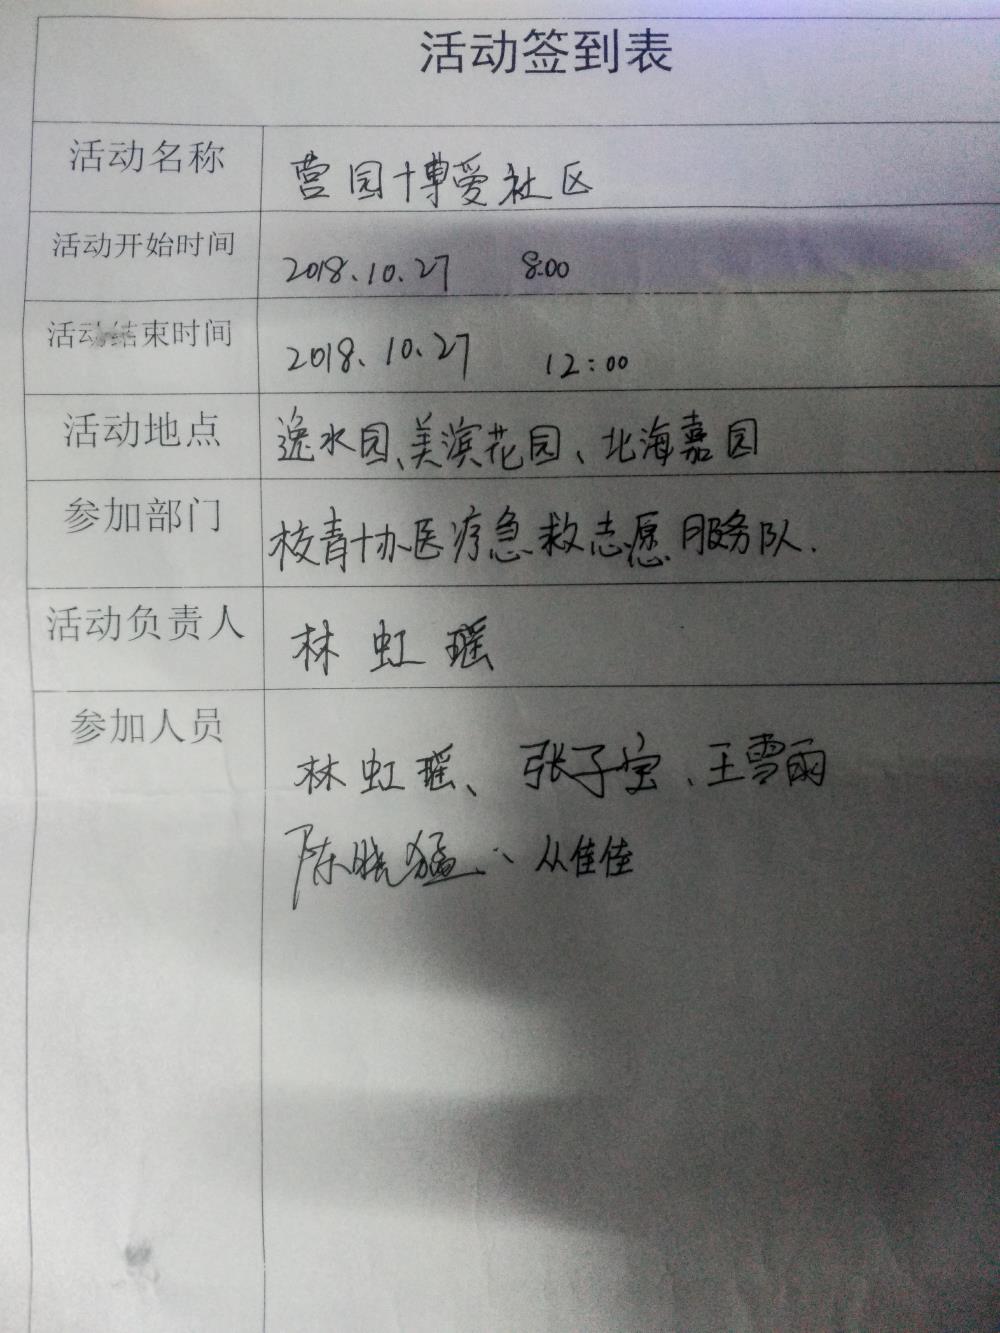 活动签到表
活动名称
营园博爱社区
活动开始时间
2018.10.27 8:00
活动结束时间
2018.10.27 12:00
活动地点
逸水园、美滨花园、北海嘉园
参加部门
校青协医疗急救志愿服务队.
活动负责人
林虹瑶
参加人员
林虹瑶、张子宝、王雪雨
陈晓猛、从佳佳